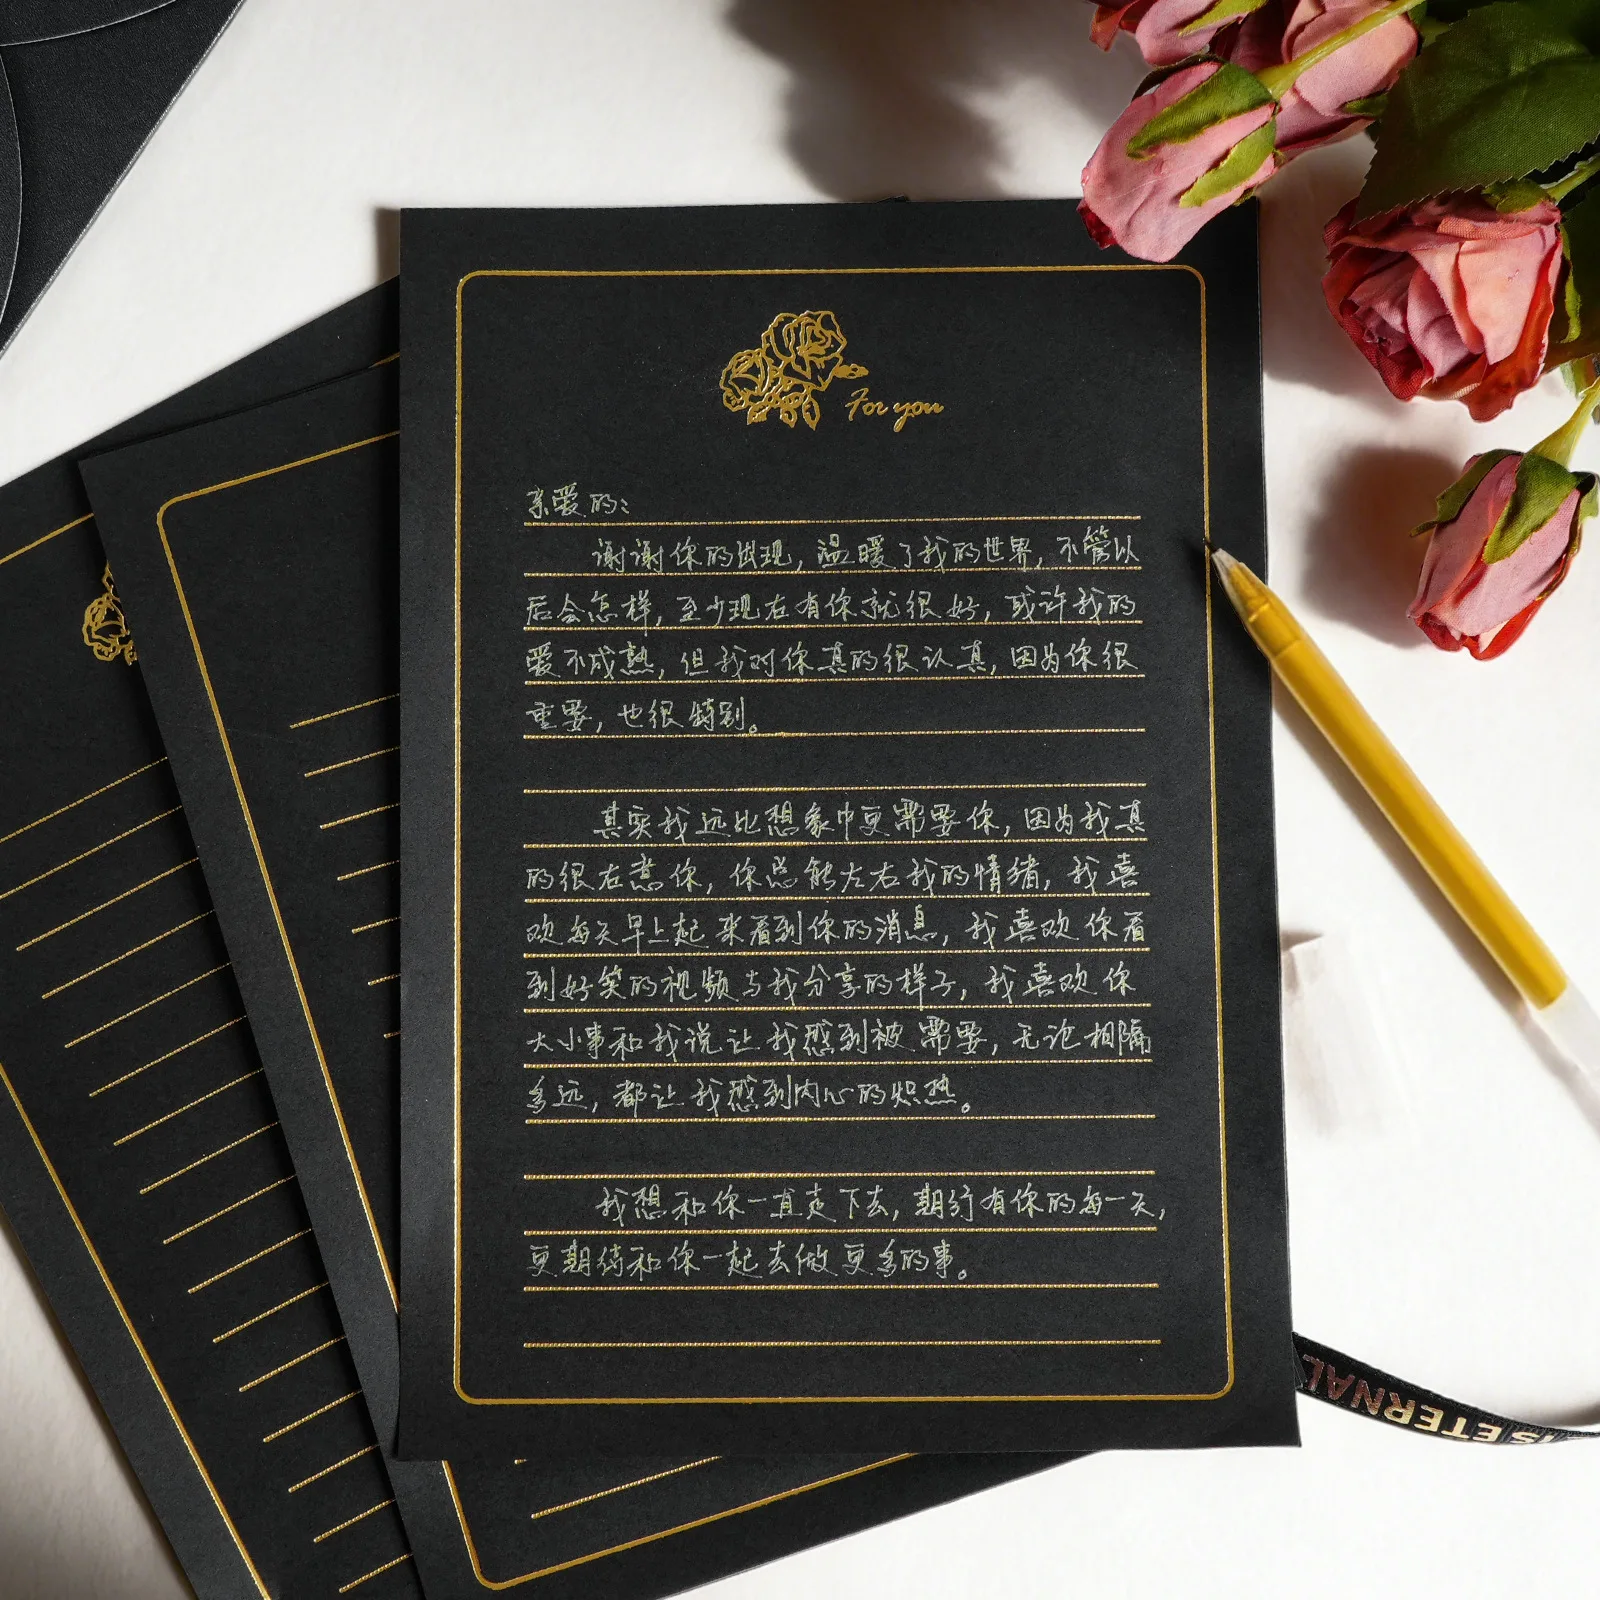 For you
亲爱的:
谢谢你的出现,温暖了我的世界,不管以
后会怎样,至少现在有你就很好,或许我的
爱不成熟,但我对你真的很认真,因为你很
重要,也很特别。
其实我远比想象中更需要你,因为我真
的很在意你,你总能左右我的情绪,我喜
欢每天早上起来看到你的消息,我喜欢你看
到好笑的视频与我分享的样子,我喜欢你
大小事和我说让我感到被需要,无论相隔
多远,都让我感到内心的炽热。
我想和你一直走下去,期待有你的每一天,
更期待和你一起去做更多的事。
IS ETERNAL